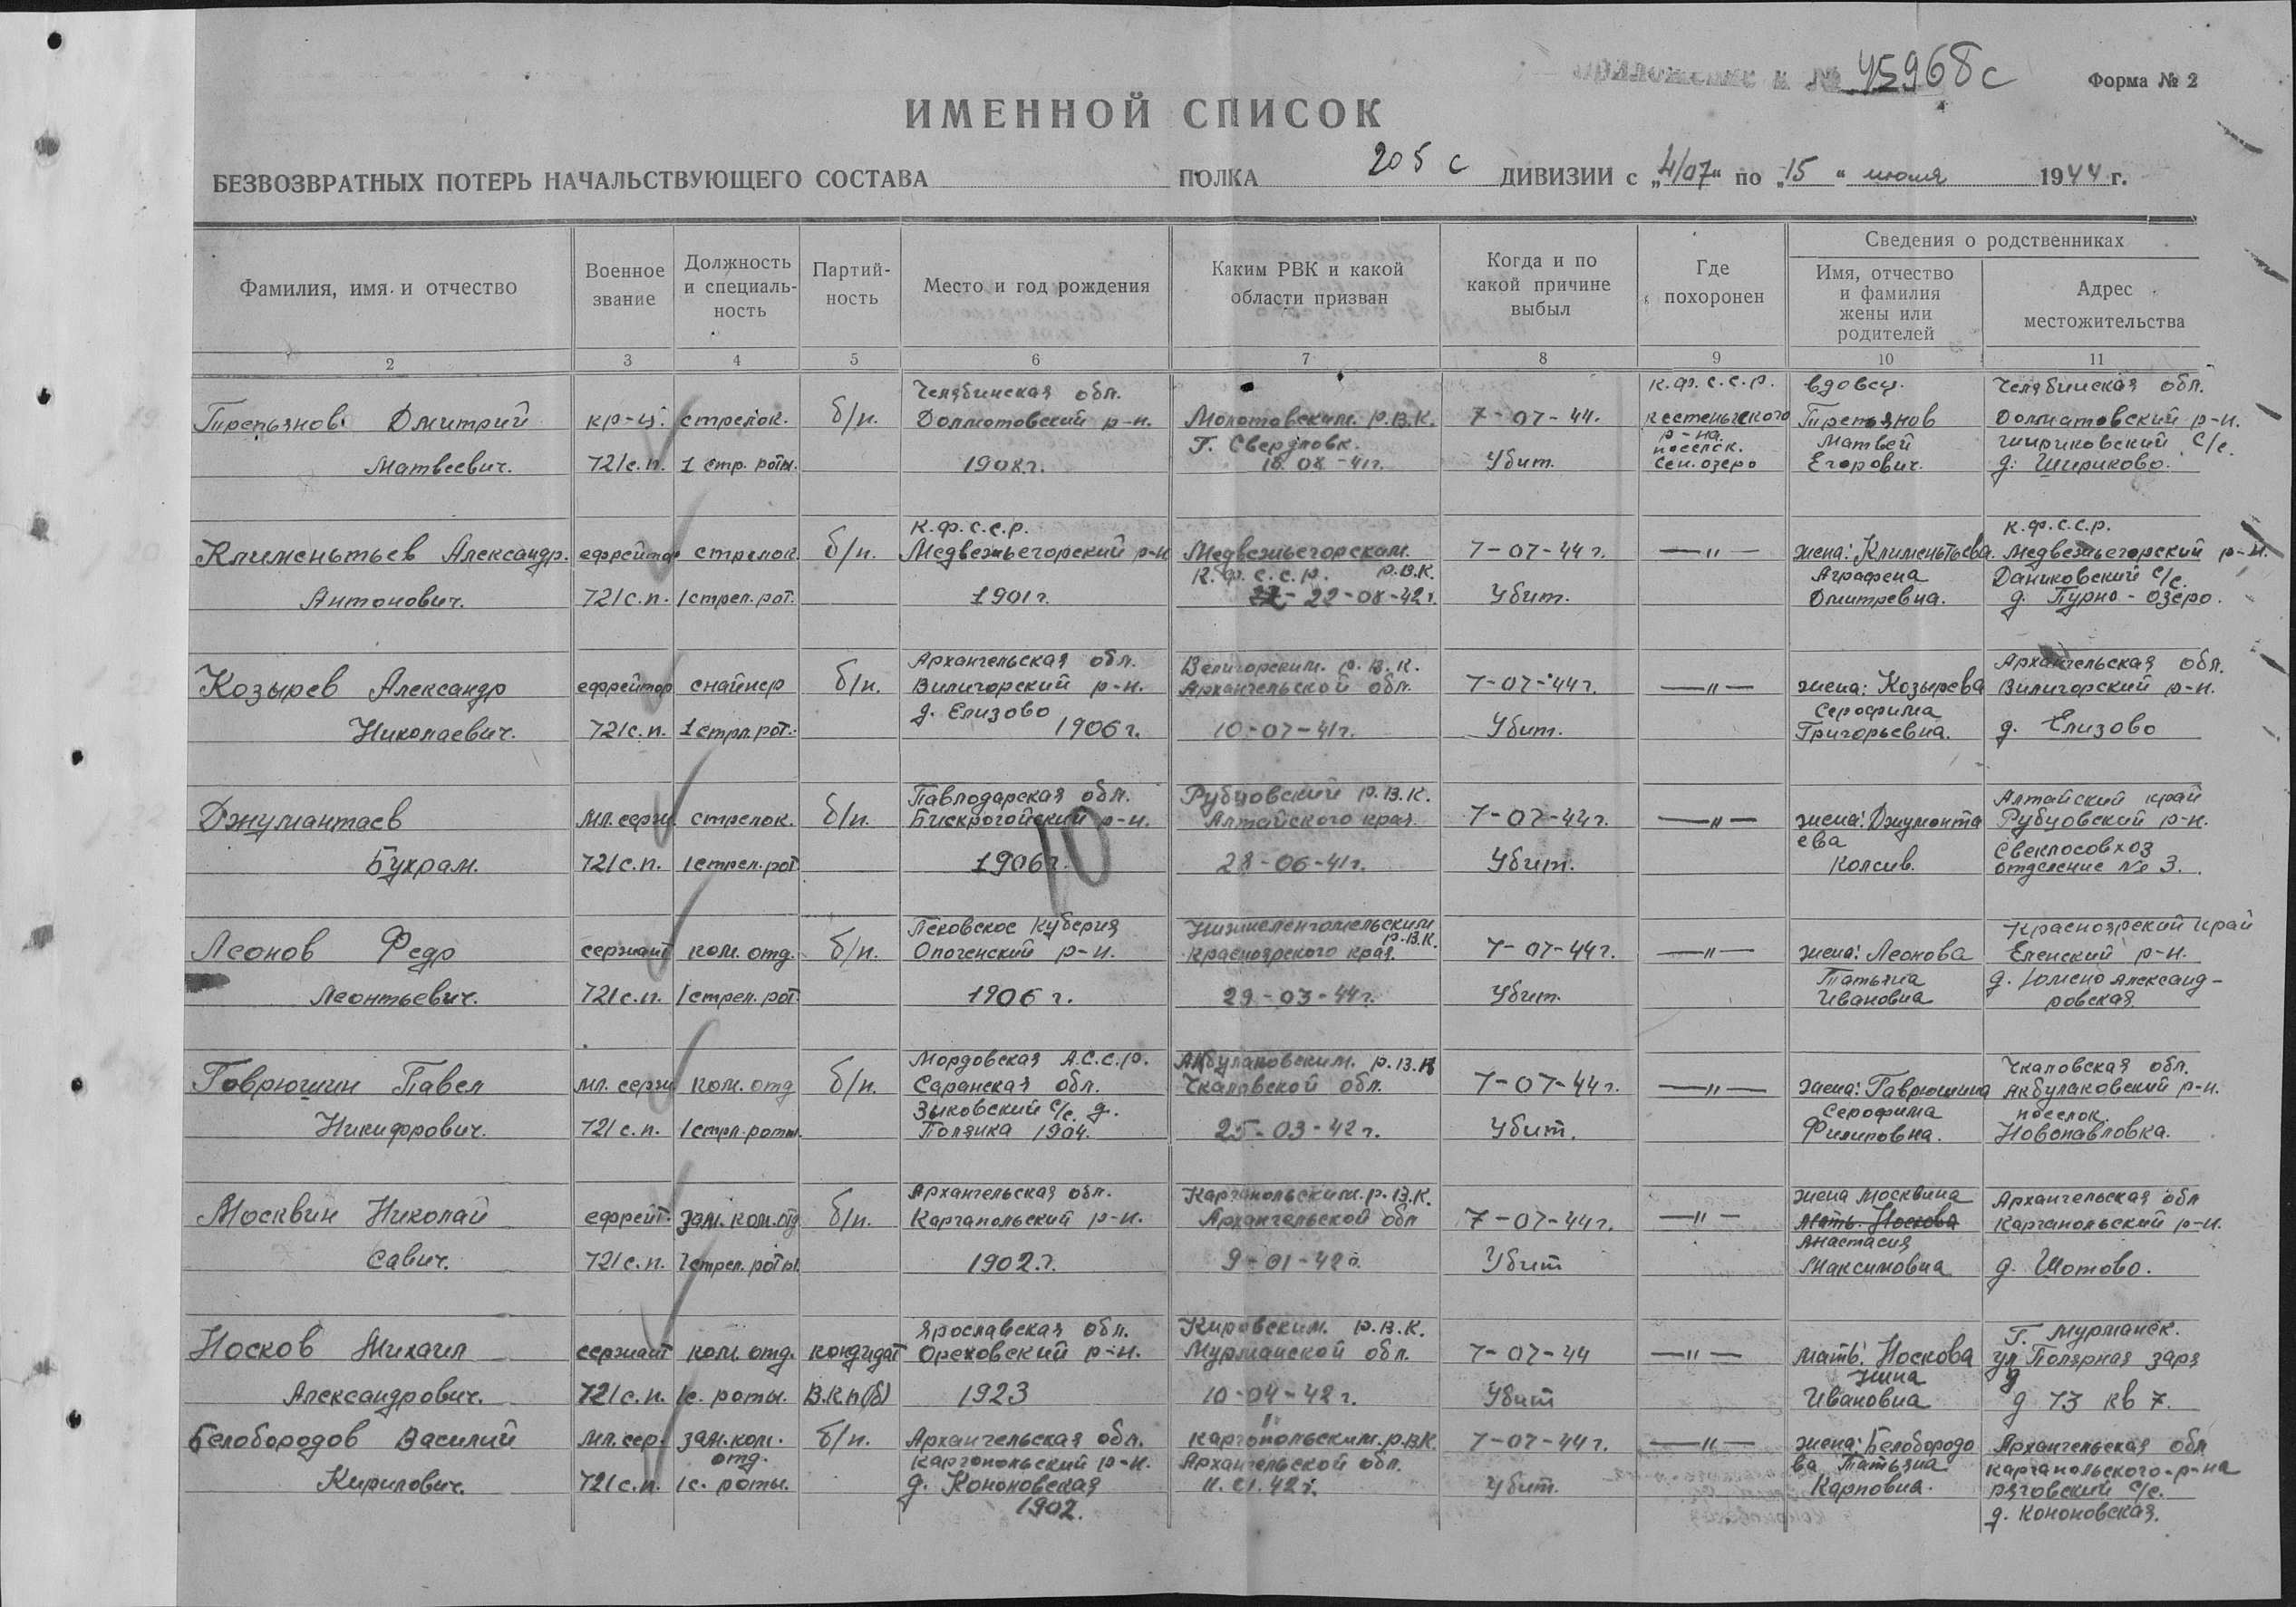 Приложение к № 45968с
Форма № 2
ИМЕННОЙ СПИСОК
БЕЗВОЗВРАТНЫХ ПОТЕРЬ НАЧАЛЬСТВУЮЩЕГО СОСТАВА ПОЛКА 205 с ДИВИЗИИ с „4/07“ по „15“ июля 1944 г.
Фамилия, имя и отчество
Военное звание
Должность и специаль-ность
Партий-ность
Место и год рождения
Каким РВК и какой области призван
Когда и по какой причине выбыл
Где похоронен
Сведения о родственниках
Имя, отчество и фамилия жены или родителей
Адрес местожительства
2 3 4 5 6 7 8 9 10 11
Челябинская обл. к.ф.с.с.р. вдовец. Челябинская обл.
Трепьянов Дмитрий кр-ц. стрелок. б/п. Долмотовский р-н. Молотовским. р.в.к. 7-07-44. кестеньгского Трепьянов Долматовский р-н.
г. Свердловк. р-на. поселок. Матвей Шириковский с/с.
Матвеевич. 721с.п. 1 стр. роты. 1908г. 18.08-41г. Убит. Сен.озеро Егорович. д. Шириково.
к.ф.с.с.р. к.ф.с.с.р.
Клименьтьев Александр. ефрейтор стрелок. б/п. Медвежьегорский р-н Медвежьегорском. 7-07-44г. —"— жена: Клименьтьева. Медвежьегорский р-н.
К.ф.с.с.р. р.в.к. Аграфена Даниковский с/с.
Антонович. 721с.п. 1стрел.рот. 1901г. 22-08-42г. Убит. Дмитревна. д. Пурно-озеро.
Архангельская обл. Велигорским. р.в.к. Архангельская обл.
Козырев Александр ефрейтор снайпер б/п. Вилигорский р-н. Архангельской обл. 7-07-44г. —"— жена: Козырева Вилигорский р-н.
д. Елизово Серофима
Николаевич. 721с.п. 1стрл.рот. 1906г. 10-07-41г. Убит. Григорьевна. д. Елизово
Павлодарская обл. Рубцовский р.в.к. Алтайский край
Джумантаев мл.серж. стрелок. б/п. Бискрогойский р-н. Алтайского края 7-07-44г. —"— жена: Джумонта Рубцовский р-н.
10 ева Свеклосовхоз
Бухрам. 721с.п. 1стрел.рот 1906г. 28-06-41г. Убит. Колсив. отделение № 3.
Псковское Куберня Нижнеленгомельским Красноярский край
р.в.к.
Леонов Федр сержант ком. отд. б/п. Опоченский р-н. красноярского края. 7-07-44г. —"— жена: Леонова Еленский р-н.
Татьяна д. Александ-
Леонтьевич. 721с.п. 1стрел.рот 1906г. 29-03-44г. Убит. Ивановна ровская.
Мордовская А.С.С.р. Акбулаковским. р.в.к Чкаловская обл.
Гаврюшин Павел мл. серж ком. отд б/п. Саранская обл. Чкаловской обл. 7-07-44г. —"— жена: Гаврюшина Акбулаковский р-н.
Зыковский с/с. д. Серофима поселок.
Никифрович. 721с.п. 1стрл.роты. Полянка 1904. 25-03-42г. Убит. Филиповна. Новопавловка.
Архангельская обл. Каргапольским.р.в.к. жена Москвина Архангельская обл
Москвин Николай ефрейт. зам.ком.отд б/п. Каргапольский р-н. Архангельской обл 7-07-44г. —"— мать. Носкова Каргапольский р-н.
Анастасия
Савич. 721с.п. 1стрел.роты. 1902.г. 9-01-42г. Убит Максимовна д. Шотово.
Ярославская обл. Кировским. р.в.к. г. Мурманск.
Носков Михаил сержант ком. отд. кондидат Ореховский р-н. Мурманской обл. 7-07-44 —"— мать: Носкова ул Полярная заря
Нина
Александрович. 721с.п. 1с. роты. В.К.п(б) 1923 10-04-42г. Убит Ивановна д 73 кв 7.
Белобородов Василий мл.сер. зам.ком. б/п. Архангельская обл. каргопольским.р.в.к. 7-07-44г. —"— жена: Белобородо Архангельская обл
отд. Каргопольский р-н. Архангельской обл. ва Татьяна каргапольского-р-на
Кирилович. 721с.п. 1с. роты. д. Кононовская 11.01.42г. Убит. Карповна. ряговский с/с.
1902. д. Кононовская.